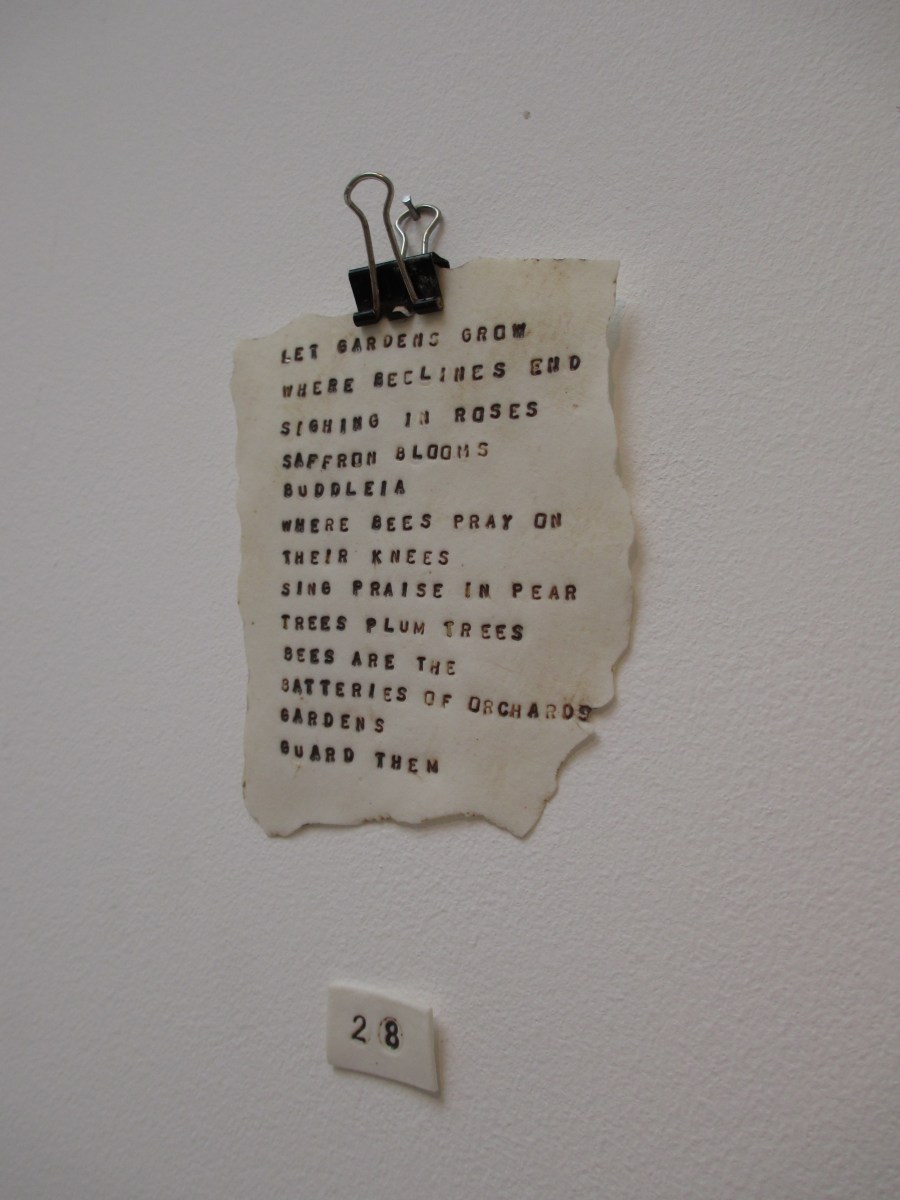 LET GARDENS GROW
WHERE BEELINES END
SIGHING IN ROSES
SAFFRON BLOOMS
BUDDLEIA
WHERE BEES PRAY ON
THEIR KNEES
SING PRAISE IN PEAR
TREES PLUM TREES
BEES ARE THE
BATTERIES OF ORCHARDS
GARDENS
GUARD THEM
28